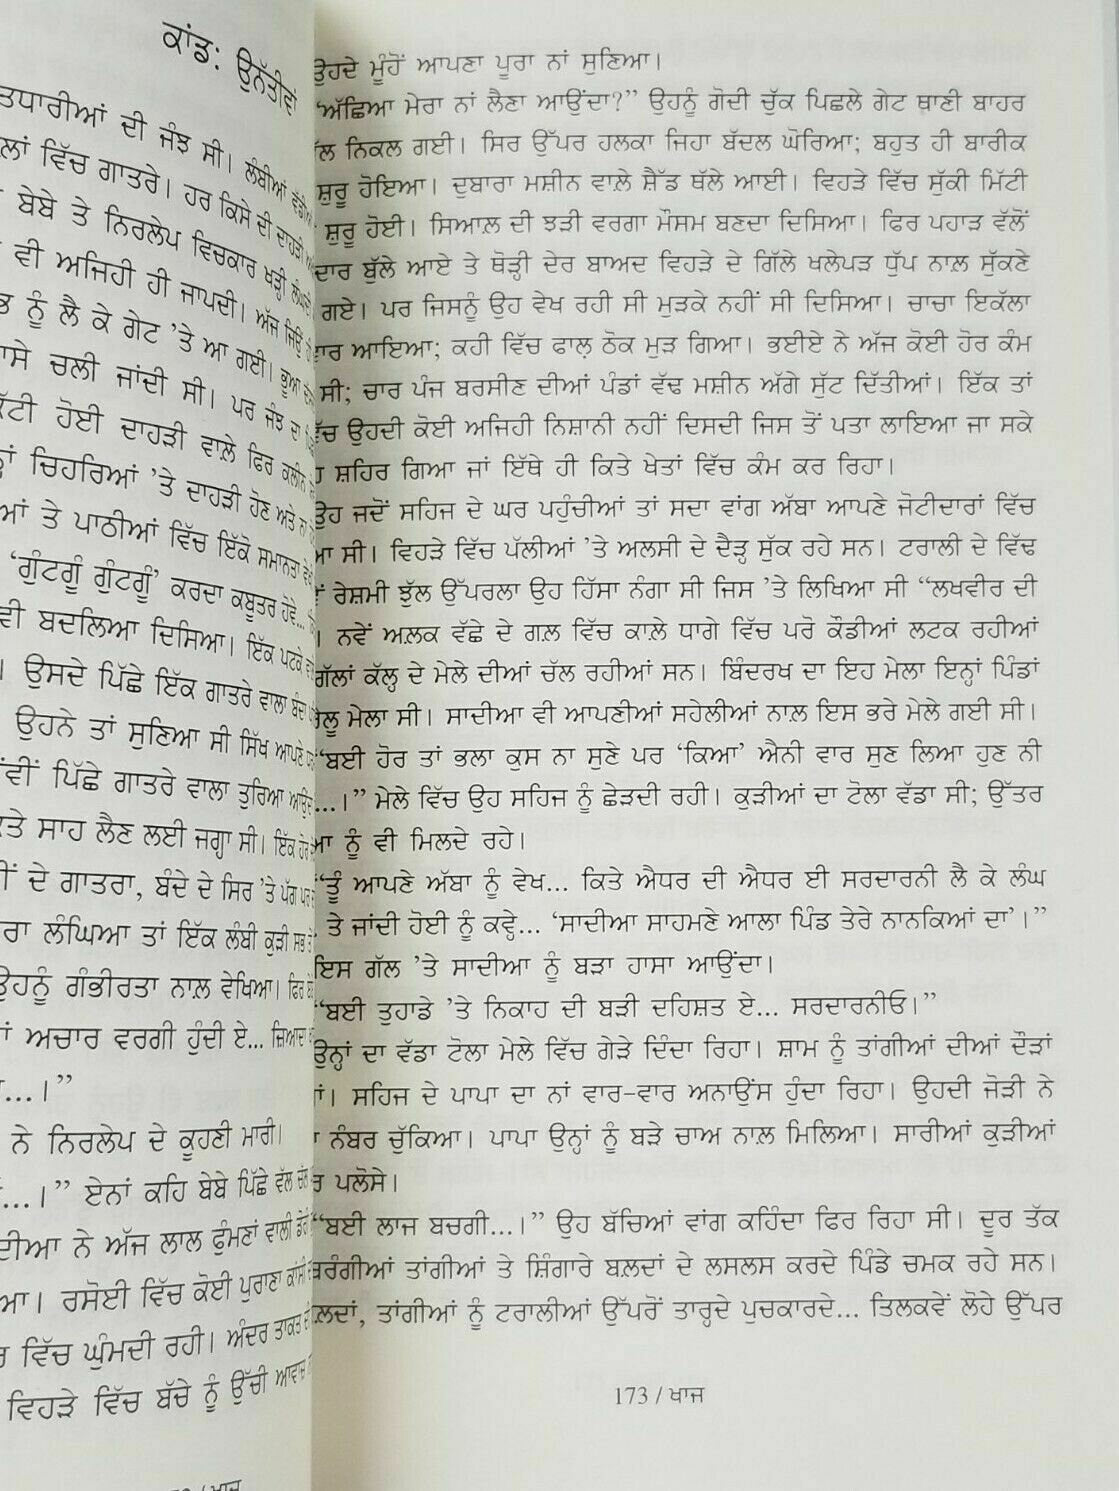 ਕਾਂਡ: ਉਨੱਤੀਵਾਂ
ਤਧਾਰੀਆਂ ਦੀ ਜੰਝ ਸੀ। ਲੰਬੀਆਂ
ਲਾਂ ਵਿੱਚ ਗਾਤਰੇ। ਹਰ ਕਿਸੇ ਦੀ ਦਾਹੜੀ
ਬੇਬੇ ਤੇ ਨਿਰਲੇਪ ਵਿਚਕਾਰ ਖੜ੍ਹੀ
ਵੀ ਅਜਿਹੀ ਹੀ ਜਾਪਦੀ। ਅੱਜ ਜਿਉਂ
ਨੂੰ ਲੈ ਕੇ ਗੇਟ ’ਤੇ ਆ ਗਈ। ਭੂਆ
ਾਸੇ ਚਲੀ ਜਾਂਦੀ ਸੀ। ਪਰ ਜੰਝ ਦਾ
ੱਟੀ ਹੋਈ ਦਾਹੜੀ ਵਾਲ਼ੇ ਫਿਰ ਕਲੀਨ
ਚਿਹਰਿਆਂ ’ਤੇ ਦਾਹੜੀ ਹੋਣ ਅਤੇ ਨਾ
ਆਂ ਤੇ ਪਾਠੀਆਂ ਵਿੱਚ ਇੱਕੋ ਸਮਾਨਤਾ
‘ਗੁੰਟਗੂੰ ਗੁੰਟਗੂੰ’ ਕਰਦਾ ਕਬੂਤਰ ਹੋਵੇ...
ਵੀ ਬਦਲਿਆ ਦਿਸਿਆ। ਇੱਕ ਪਟਕੇ
। ਉਸਦੇ ਪਿੱਛੇ ਇੱਕ ਗਾਤਰੇ ਵਾਲਾ ਬੰਦਾ
ਉਹਨੇ ਤਾਂ ਸੁਣਿਆ ਸੀ ਸਿੱਖ ਆਪਣੇ
ਪਿੱਛੇ ਗਾਤਰੇ ਵਾਲਾ ਤੁਰਿਆ
ਤੇ ਸਾਹ ਲੈਣ ਲਈ ਜਗ੍ਹਾ ਸੀ। ਇੱਕ ਹੋਰ
ਦੇ ਗਾਤਰਾ, ਬੰਦੇ ਦੇ ਸਿਰ ’ਤੇ ਪੱਗ ਪਰ
ਰਾ ਲੰਘਿਆ ਤਾਂ ਇੱਕ ਲੰਬੀ ਕੁੜੀ ਸਭ ਤੋਂ
ਉਹਨੂੰ ਗੰਭੀਰਤਾ ਨਾਲ਼ ਵੇਖਿਆ। ਫਿਰ
ਅਚਾਰ ਵਰਗੀ ਹੁੰਦੀ ਏ... ਜ਼ਿਆਦਾ
...।”
ਨੇ ਨਿਰਲੇਪ ਦੇ ਕੂਹਣੀ ਮਾਰੀ।
...।” ਏਨਾਂ ਕਹਿ ਬੇਬੇ ਪਿੱਛੇ ਵੱਲ
ਦੀਆ ਨੇ ਅੱਜ ਲਾਲ ਫੁੰਮਣਾਂ ਵਾਲੀ
ਆ। ਰਸੋਈ ਵਿੱਚ ਕੋਈ ਪੁਰਾਣਾ ਕਾਂਸੀ
ਵਿੱਚ ਘੁੰਮਦੀ ਰਹੀ। ਅੰਦਰ ਤਾਕਤ
ਵਿਹੜੇ ਵਿੱਚ ਬੱਚੇ ਨੂੰ ਉੱਚੀ ਆਵਾਜ਼
ਉਹਦੇ ਮੂੰਹੋਂ ਆਪਣਾ ਪੂਰਾ ਨਾਂ ਸੁਣਿਆ।
“ਅੱਛਿਆ ਮੇਰਾ ਨਾਂ ਲੈਣਾ ਆਉਂਦਾ?” ਉਹਨੂੰ ਗੋਦੀ ਚੁੱਕ ਪਿਛਲੇ ਗੇਟ ਥਾਣੀ ਬਾਹਰ
ਨਿਕਲ ਗਈ। ਸਿਰ ਉੱਪਰ ਹਲਕਾ ਜਿਹਾ ਬੱਦਲ ਘੋਰਿਆ; ਬਹੁਤ ਹੀ ਬਾਰੀਕ
ਸ਼ੁਰੂ ਹੋਇਆ। ਦੁਬਾਰਾ ਮਸ਼ੀਨ ਵਾਲ਼ੇ ਸ਼ੈੱਡ ਥੱਲੇ ਆਈ। ਵਿਹੜੇ ਵਿੱਚ ਸੁੱਕੀ ਮਿੱਟੀ
ਸ਼ੁਰੂ ਹੋਈ। ਸਿਆਲ਼ ਦੀ ਝੜੀ ਵਰਗਾ ਮੌਸਮ ਬਣਦਾ ਦਿਸਿਆ। ਫਿਰ ਪਹਾੜ ਵੱਲੋਂ
ਦਾਰ ਬੁੱਲੇ ਆਏ ਤੇ ਥੋੜ੍ਹੀ ਦੇਰ ਬਾਅਦ ਵਿਹੜੇ ਦੇ ਗਿੱਲੇ ਖਲੇਪੜ ਧੁੱਪ ਨਾਲ਼ ਸੁੱਕਣੇ
ਗਏ। ਪਰ ਜਿਸਨੂੰ ਉਹ ਵੇਖ ਰਹੀ ਸੀ ਮੁੜਕੇ ਨਹੀਂ ਸੀ ਦਿਸਿਆ। ਚਾਚਾ ਇਕੱਲਾ
ਵਾਰ ਆਇਆ; ਕਹੀ ਵਿੱਚ ਫਾਲ਼ ਠੋਕ ਮੁੜ ਗਿਆ। ਭਈਏ ਨੇ ਅੱਜ ਕੋਈ ਹੋਰ ਕੰਮ
ਸੀ; ਚਾਰ ਪੰਜ ਬਰਸੀਣ ਦੀਆਂ ਪੰਡਾਂ ਵੱਢ ਮਸ਼ੀਨ ਅੱਗੇ ਸੁੱਟ ਦਿੱਤੀਆਂ। ਇੱਕ ਤਾਂ
ੱਚ ਉਹਦੀ ਕੋਈ ਅਜਿਹੀ ਨਿਸ਼ਾਨੀ ਨਹੀਂ ਦਿਸਦੀ ਜਿਸ ਤੋਂ ਪਤਾ ਲਾਇਆ ਜਾ ਸਕੇ
ਸ਼ਹਿਰ ਗਿਆ ਜਾਂ ਇੱਥੇ ਹੀ ਕਿਤੇ ਖੇਤਾਂ ਵਿੱਚ ਕੰਮ ਕਰ ਰਿਹਾ।
ਉਹ ਜਦੋਂ ਸਹਿਜ ਦੇ ਘਰ ਪਹੁੰਚੀਆਂ ਤਾਂ ਸਦਾ ਵਾਂਗ ਅੱਬਾ ਆਪਣੇ ਜੋਟੀਦਾਰਾਂ ਵਿੱਚ
ਆ ਸੀ। ਵਿਹੜੇ ਵਿੱਚ ਪੱਲੀਆਂ ’ਤੇ ਅਲਸੀ ਦੇ ਦੈੜ੍ਹ ਸੁੱਕ ਰਹੇ ਸਨ। ਟਰਾਲੀ ਦੇ ਵਿੱਢ
ਰੇਸ਼ਮੀ ਝੁੱਲ ਉੱਪਰਲਾ ਉਹ ਹਿੱਸਾ ਨੰਗਾ ਸੀ ਜਿਸ ’ਤੇ ਲਿਖਿਆ ਸੀ “ਲਖਵੀਰ ਦੀ
। ਨਵੇਂ ਅਲ਼ਕ ਵੱਛੇ ਦੇ ਗਲ਼ ਵਿੱਚ ਕਾਲ਼ੇ ਧਾਗੇ ਵਿੱਚ ਪਰੋ ਕੌਡੀਆਂ ਲਟਕ ਰਹੀਆਂ
ਗੱਲਾਂ ਕੱਲ੍ਹ ਦੇ ਮੇਲੇ ਦੀਆਂ ਚੱਲ ਰਹੀਆਂ ਸਨ। ਬਿੰਦਰਖ ਦਾ ਇਹ ਮੇਲਾ ਇਨ੍ਹਾਂ ਪਿੰਡਾਂ
ਰੇਲੂ ਮੇਲਾ ਸੀ। ਸਾਦੀਆ ਵੀ ਆਪਣੀਆਂ ਸਹੇਲੀਆਂ ਨਾਲ਼ ਇਸ ਭਰੇ ਮੇਲੇ ਗਈ ਸੀ।
“ਬਈ ਹੋਰ ਤਾਂ ਭਲਾ ਕੁਸ ਨਾ ਸੁਣੇ ਪਰ ‘ਕਿਆ’ ਐਨੀ ਵਾਰ ਸੁਣ ਲਿਆ ਹੁਣ ਨੀ
...।” ਮੇਲੇ ਵਿੱਚ ਉਹ ਸਹਿਜ ਨੂੰ ਛੇੜਦੀ ਰਹੀ। ਕੁੜੀਆਂ ਦਾ ਟੋਲਾ ਵੱਡਾ ਸੀ; ਉੱਤਰ
ਆ ਨੂੰ ਵੀ ਮਿਲਦੇ ਰਹੇ।
“ਤੂੰ ਆਪਣੇ ਅੱਬਾ ਨੂੰ ਵੇਖ... ਕਿਤੇ ਐਧਰ ਦੀ ਐਧਰ ਈ ਸਰਦਾਰਨੀ ਲੈ ਕੇ ਲੰਘ
ਤੇ ਜਾਂਦੀ ਹੋਈ ਨੂੰ ਕਵ੍ਹੇ... ‘ਸਾਦੀਆ ਸਾਹਮਣੇ ਆਲਾ ਪਿੰਡ ਤੇਰੇ ਨਾਨਕਿਆਂ ਦਾ’।”
ਇਸ ਗੱਲ ’ਤੇ ਸਾਦੀਆ ਨੂੰ ਬੜਾ ਹਾਸਾ ਆਉਂਦਾ।
“ਬਈ ਤੁਹਾਡੇ ’ਤੇ ਨਿਕਾਹ ਦੀ ਬੜੀ ਦਹਿਸ਼ਤ ਏ... ਸਰਦਾਰਨੀਓ।”
ਉਨ੍ਹਾਂ ਦਾ ਵੱਡਾ ਟੋਲਾ ਮੇਲੇ ਵਿੱਚ ਗੇੜੇ ਦਿੰਦਾ ਰਿਹਾ। ਸ਼ਾਮ ਨੂੰ ਤਾਂਗੀਆਂ ਦੀਆਂ ਦੌੜਾਂ
ਾਂ। ਸਹਿਜ ਦੇ ਪਾਪਾ ਦਾ ਨਾਂ ਵਾਰ-ਵਾਰ ਅਨਾਉਂਸ ਹੁੰਦਾ ਰਿਹਾ। ਉਹਦੀ ਜੋੜੀ ਨੇ
ਨੰਬਰ ਚੁੱਕਿਆ। ਪਾਪਾ ਉਨ੍ਹਾਂ ਨੂੰ ਬੜੇ ਚਾਅ ਨਾਲ਼ ਮਿਲਿਆ। ਸਾਰੀਆਂ ਕੁੜੀਆਂ
ਰ ਪਲੋਸੇ।
“ਬਈ ਲਾਜ ਬਚਗੀ...।” ਉਹ ਬੱਚਿਆਂ ਵਾਂਗ ਕਹਿੰਦਾ ਫਿਰ ਰਿਹਾ ਸੀ। ਦੂਰ ਤੱਕ
ਬਰੰਗੀਆਂ ਤਾਂਗੀਆਂ ਤੇ ਸ਼ਿੰਗਾਰੇ ਬਲ਼ਦਾਂ ਦੇ ਲਸਲਸ ਕਰਦੇ ਪਿੰਡੇ ਚਮਕ ਰਹੇ ਸਨ।
ਲ਼ਦਾਂ, ਤਾਂਗੀਆਂ ਨੂੰ ਟਰਾਲੀਆਂ ਉੱਪਰੋਂ ਤਾਰ੍ਹਦੇ ਪੁਚਕਾਰਦੇ... ਤਿਲਕਵੇਂ ਲੋਹੇ ਉੱਪਰ
173 / ਖਾਜ